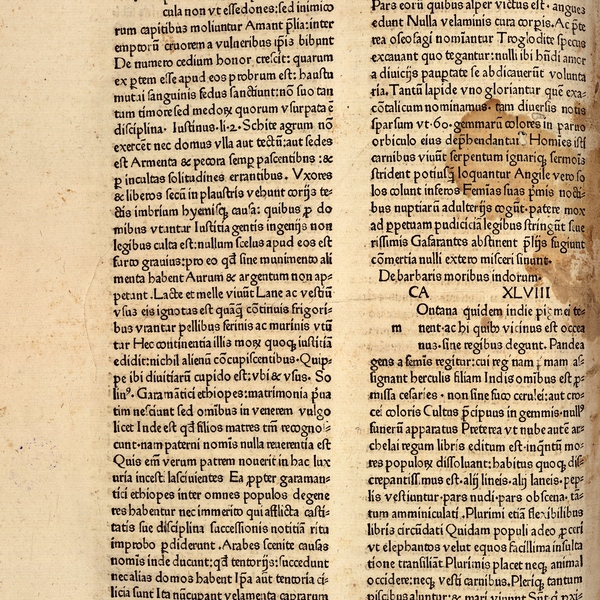 cula non vt essedones: sed inimico
rum capitibus moliuntur Amant plia: inter
emptorū cruorem a vulneribus ipīs bibunt
De numero cedium honor crescit: quarum
ex ptem esse apud eos probrum est: haustu
mutui sanguinis fedus sanctiunt: nō suo tan
tum timore sed medoꝝ quorum vsurpata ē
disciplina. Iustinus. li. 2. Schite agrum nō
exercēt nec domus vlla aut tectū: aut sedes
est Armenta & pecora semp pascentibus: &
ꝑ incultas solitudines errantibus. Vxores
& liberos secū in plaustris vehunt corijs te-
ctis imbrium hyemisqꝫ causa: quibus ꝓ do
mibus vtuntur Iustitia gentis ingenijs non
legibus culta est: nullum scelus apud eos est
furto grauius: pro eo qd sine munimento ali
menta habent Aurum & argentum non ap-
petunt. Lacte et melle viuūt Lane ac vestiū
vsus eis ignotus est quāqꝫ cōtinuis frigori-
bus vrantur pellibus ferinis ac murinis vtū
tur Hec continentia illis moꝝ quoqꝫ iustitiā
edidit: nichil alienū cōcupiscentibus. Quip-
pe ibi diuitiarū cupido est: vbi & vsus. So
linꝰ. Garamātici ethiopes: matrimonia pua
tim nesciunt sed omībus in venerem vulgo
licet Inde est qd filios matres tm̄ recogno-
cunt. nam paterni nomis nulla reuerentia est
Quis em̄ verum patrem nouerit in hac lux
uria incesti lasciuientes Ea ꝓpter garaman-
tici ethiopes inter omnes populos degene
res habentur nec immerito qui afflicta casti-
tatis sue disciplina successionis notitiā ritu
improbo ꝑdiderunt. Arabes scenite causas
nomis inde ducunt: qd tentorijs: succedunt
nec alias domos habent Ipa aūt tentoria ci-
licia sunt Ita nuncupant velamenta caprarum
Pars eorū quibus alper victus est. angues
edunt Nulla velaminis cura corpis. Ac pte
rea oseosagi nomiantur Troglodite specus
excauant quo tegantur: nulli ibi hn̄di amor
a diuicijs pauptate se abdicauerūt volunta
ria. Tantū lapide vno gloriantur quē exa-
cōtalicum nominamus. tam diuersis notis
sparsum vt. 60. gemmarū colores in paruo
orbiculo eius dephendantur Homies isti
carnibus viuūt serpentum ignariqꝫ sermois
strident potiusqꝫ loquantur Angile vero so
los colunt inferos Femias suas pmis nocti-
bus nuptiarū adulterijs cogūt. patere mox
ad ppetuam pudiciciā legibus stringūt sue
rissimis Gafarantes abstinent plijs fugiunt
cōmertia nulli extero misceri sinunt.
De barbaris moribus indorum.
CA XLVIII
Ontana quidem indie pigmei te-
m nent. ac hi quibꝰ vicinus est ocea
nus. sine regibus degunt. Pandea
gens a femis regitur: cui reginam pmam as-
signant herculis filiam Indis omibus est ꝓ-
missa cesaries. non sine fuco cerulei: aut cro-
cei coloris Cultus pcipuus in gemmis. nullꝰ
funerū apparatus Preterea vt iube autē ar-
chelai regum libris editum est. inquntū mo-
res populoꝝ dissoluant: habitus quoqꝫ dis-
crepantissimus est. alij lineis. alij laneis. pep-
lis vestiuntur. pars nudi. pars obscena. tā-
tum amminiculati. Plurimi etiā flexibilibus
libris circūdati Quidam populi adeo ꝓceri
vt elephantos velut equos facillima insulta
tione transiliāt Plurimis placet neqꝫ animal
occidere; neqꝫ vesti carnibus. Pleriqꝫ tantum
piscibus aluntur: & mari viuunt Sūt qi pxi-